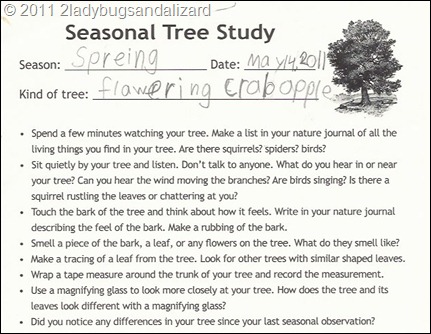 © 2011 2ladybugsandalizard
Seasonal Tree Study
Season: Spreing Date: May 14, 2011
Kind of tree: flawering crabapple
• Spend a few minutes watching your tree. Make a list in your nature journal of all the
living things you find in your tree. Are there squirrels? spiders? birds?
• Sit quietly by your tree and listen. Don't talk to anyone. What do you hear in or near
your tree? Can you hear the wind moving the branches? Are birds singing? Is there a
squirrel rustling the leaves or chattering at you?
• Touch the bark of the tree and think about how it feels. Write in your nature journal
describing the feel of the bark. Make a rubbing of the bark.
• Smell a piece of the bark, a leaf, or any flowers on the tree. What do they smell like?
• Make a tracing of a leaf from the tree. Look for other trees with similar shaped leaves.
• Wrap a tape measure around the trunk of your tree and record the measurement.
• Use a magnifying glass to look more closely at your tree. How does the tree and its
leaves look different with a magnifying glass?
• Did you notice any differences in your tree since your last seasonal observation?